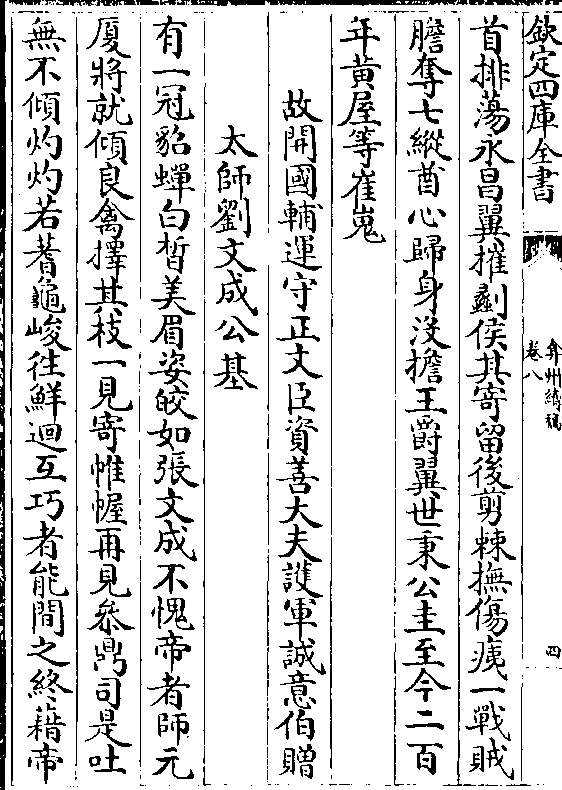 欽定四庫全書
弇州續稿
卷八
四
首排蕩永昌翼摧剷侯其寄留後剪棘撫傷痍一戰賊
膽奪七縱酋心歸身沒擔王爵翼世秉公圭至今二百
年黃屋等崔嵬
故開國輔運守正文臣資善大夫護軍誠意伯贈
太師劉文成公基
有一冠貂蟬白皙美眉姿皎如張文成不愧帝者師元
厦將就傾良禽擇其枝一見寄帷幄再見叅鼎司是吐
無不傾灼灼若蓍龜峻徃鮮迴互巧者能間之終藉帝